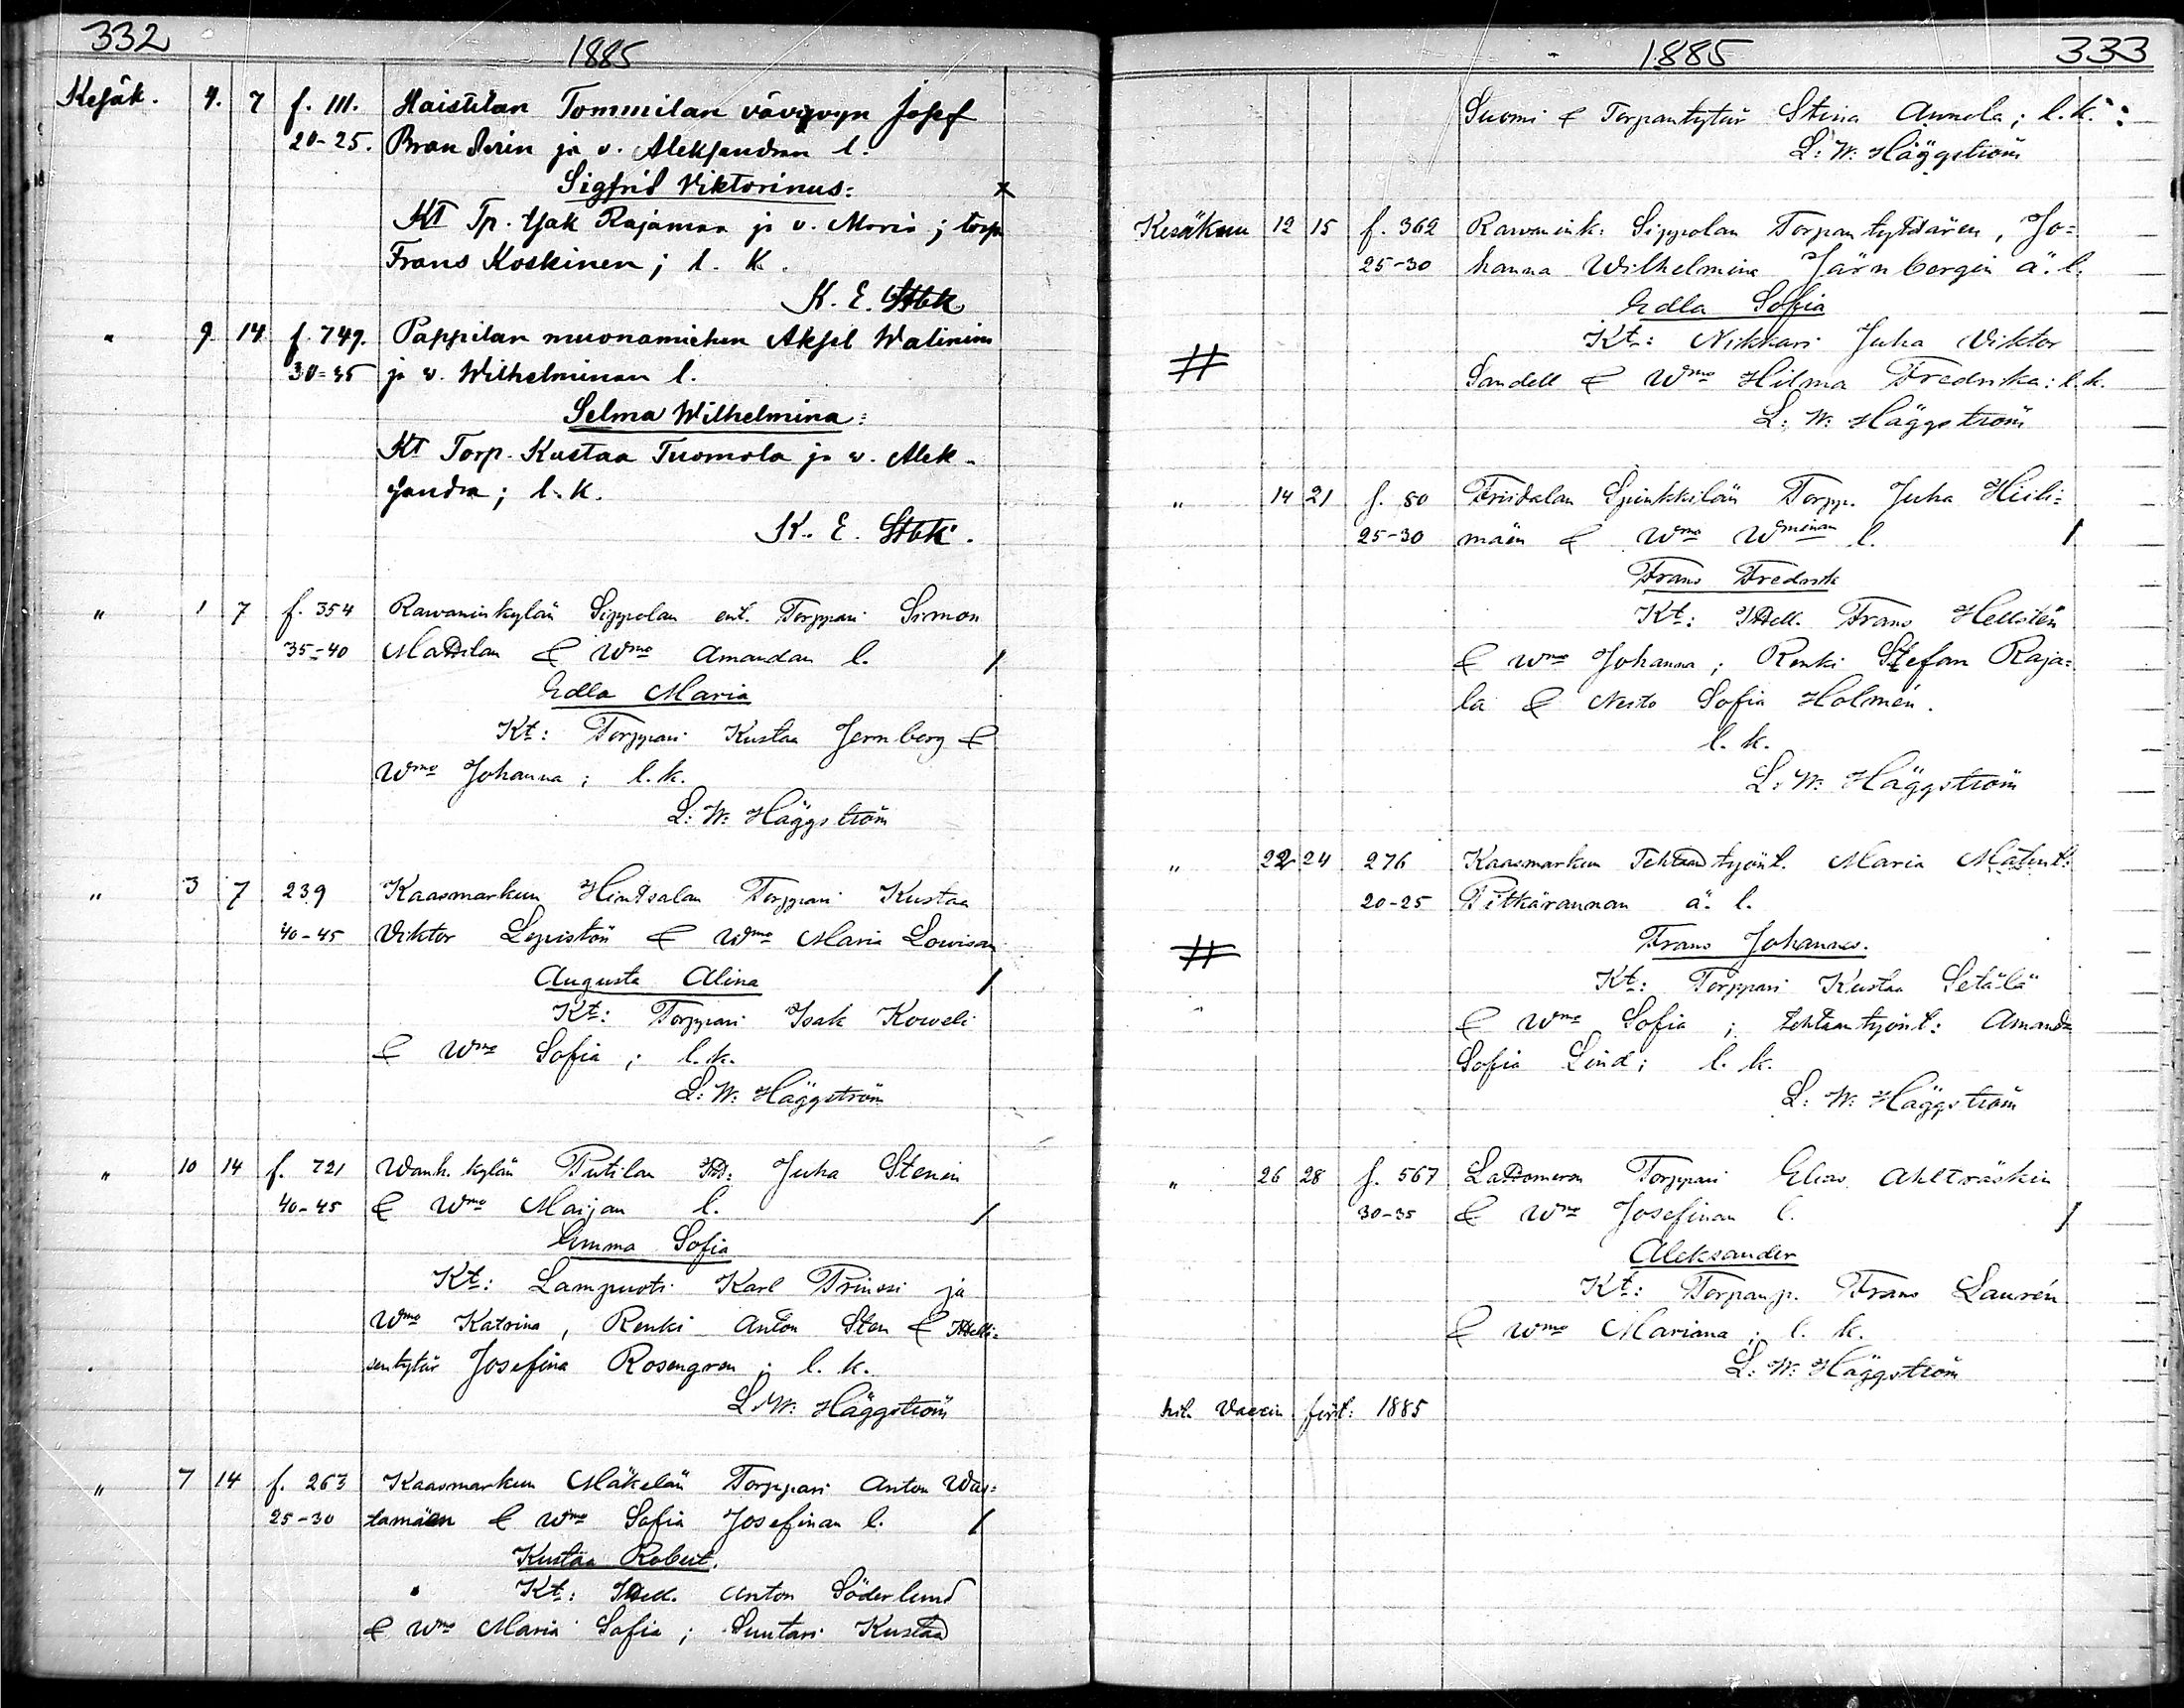 332
1885
Kesäk. 4. 7 f. 111. Haistilan Tommilan vävypojan Josef
20-25. Branderin ja v. Aleksandran l.
Sigfrid Viktorinus: x
Kt Tp. Isak Rajamaa ja v. Maria; torp.
Frans Koskinen; l. k.
K. E. Stbk
" 9 14 f. 749. Pappilan muonamiehen Aksel Walinin
30=35 ja v. Wilhelminan l.
Selma Wilhelmina:
Kt Torp. Kustaa Tuomola ja v. Alek-
sandra; l. k.
K. E. Stbk.
" 1 7 f. 354 Rawaninkylän Sippolan ent. Torppari Simon
35-40 Mattilan & Wmo Amandan l. /
Edla Maria
Kt: Torppari Kustaa Jernberg &
Wmo Johanna; l. k.
L: W: Häggström
" 3 7 239 Kaasmarkun Hintsalan Torppari Kustaa
40-45 Viktor Lepistön & Wmo Maria Lowisan
Augusta Alina /
Kt: Torppari Isak Koweli
& Wmo Sofia; l. k.
L: W: Häggström
" 10 14 f. 721 Wanh. kylän Putilan Juha Stenin
40-45 & Wmo Maijan l. /
Emma Sofia
Kt: Lampuoti Karl Prinssi ja
Wmo Katrina, Renki Anton Sten & Itselli-
sentytär Josefina Rosengren; l. k.
L. W: Häggström
" 7 14 f. 263 Kaasmarkun Mäkelän Torppari Anton Was-
25-30 tamäen & Wmo Sofia Josefinan l. /
Kustaa Robert.
Kt: Itsell. Anton Söderlund
& Wmo Maria Sofia; Suutari Kustaa
1885
333
Suomi & Torpantytär Stina Annola; l. k.:
L: W: Häggström
Kesäkuu 12 15 f. 362 Rawanink: Sippolan Torpantyttären, Jo=
25-30 hanna Wilhelmina Järnbergin ä. l.
Edla Sofia
# Kt: Nikkari Juha Viktor
Sandell & Wmo Hilma Fredrika: l. k.
L: W: Häggström
" 14 21 f. 80 Friidalan Spinkkilän Torpp. Juha Hiili=
25-30 mäen & Wmo Wminan l. /
Frans Fredrik
Kt: Itsell. Frans Hellstén
& Wmo Johanna; Renki Stefan Raja=
la & Neito Sofia Holmén.
l. k.
L: W: Häggström
" 22 24 276 Kaasmarkun Tehtaantyönt. Maria Matint:
20-25 Pitkärannan ä. l.
# Frans Johannes.
Kt: Torppari Kustaa Setälä
& Wmo Sofia; tehtaantyönt: Amanda
Sofia Lind; l. k.
L: W: Häggström
" 26 28 f. 567 Lattomeren Torppari Elias Ahlträskin
30-35 & Wmo Josefinan l. /
Aleksander
Kt: Torpanp. Frans Laurén
& Wmo Mariana; l. k.
L: W: Häggström
hit. Vaccin. fört: 1885